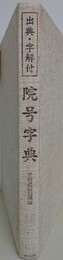 出典・字解付
院号字典